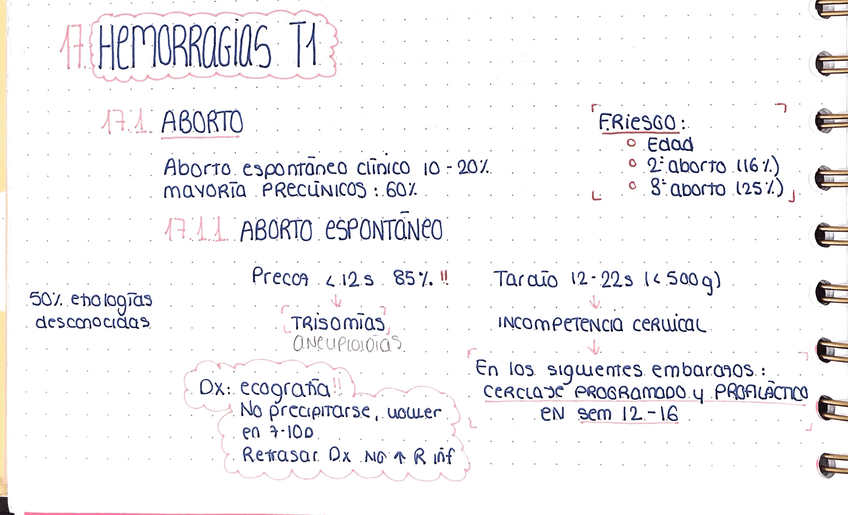 17. HEMORRAGIAS T1
17.1. ABORTO
Aborto espontáneo clínico 10-20%
MAYORÍA PRECLÍNICOS: 60%
F.RIESGO:
Edad
2º aborto (16%)
3º aborto (25%)
17.1.1. ABORTO ESPONTÁNEO
50% etiologías
desconocidas
Precoz < 12s 85% !!
↓
TRISOMÍAS
ANEUPLOIDÍAS
Tardío 12-22s (<500g)
↓
INCOMPETENCIA CERVICAL
↓
En los siguientes embarazos:
CERCLAJE PROGRAMADO y PROFILÁCTICO
EN sem 12-16
Dx: ecografía!!
No precipitarse, volver
en 7-10D
Retrasar Dx NO ↑ R inf